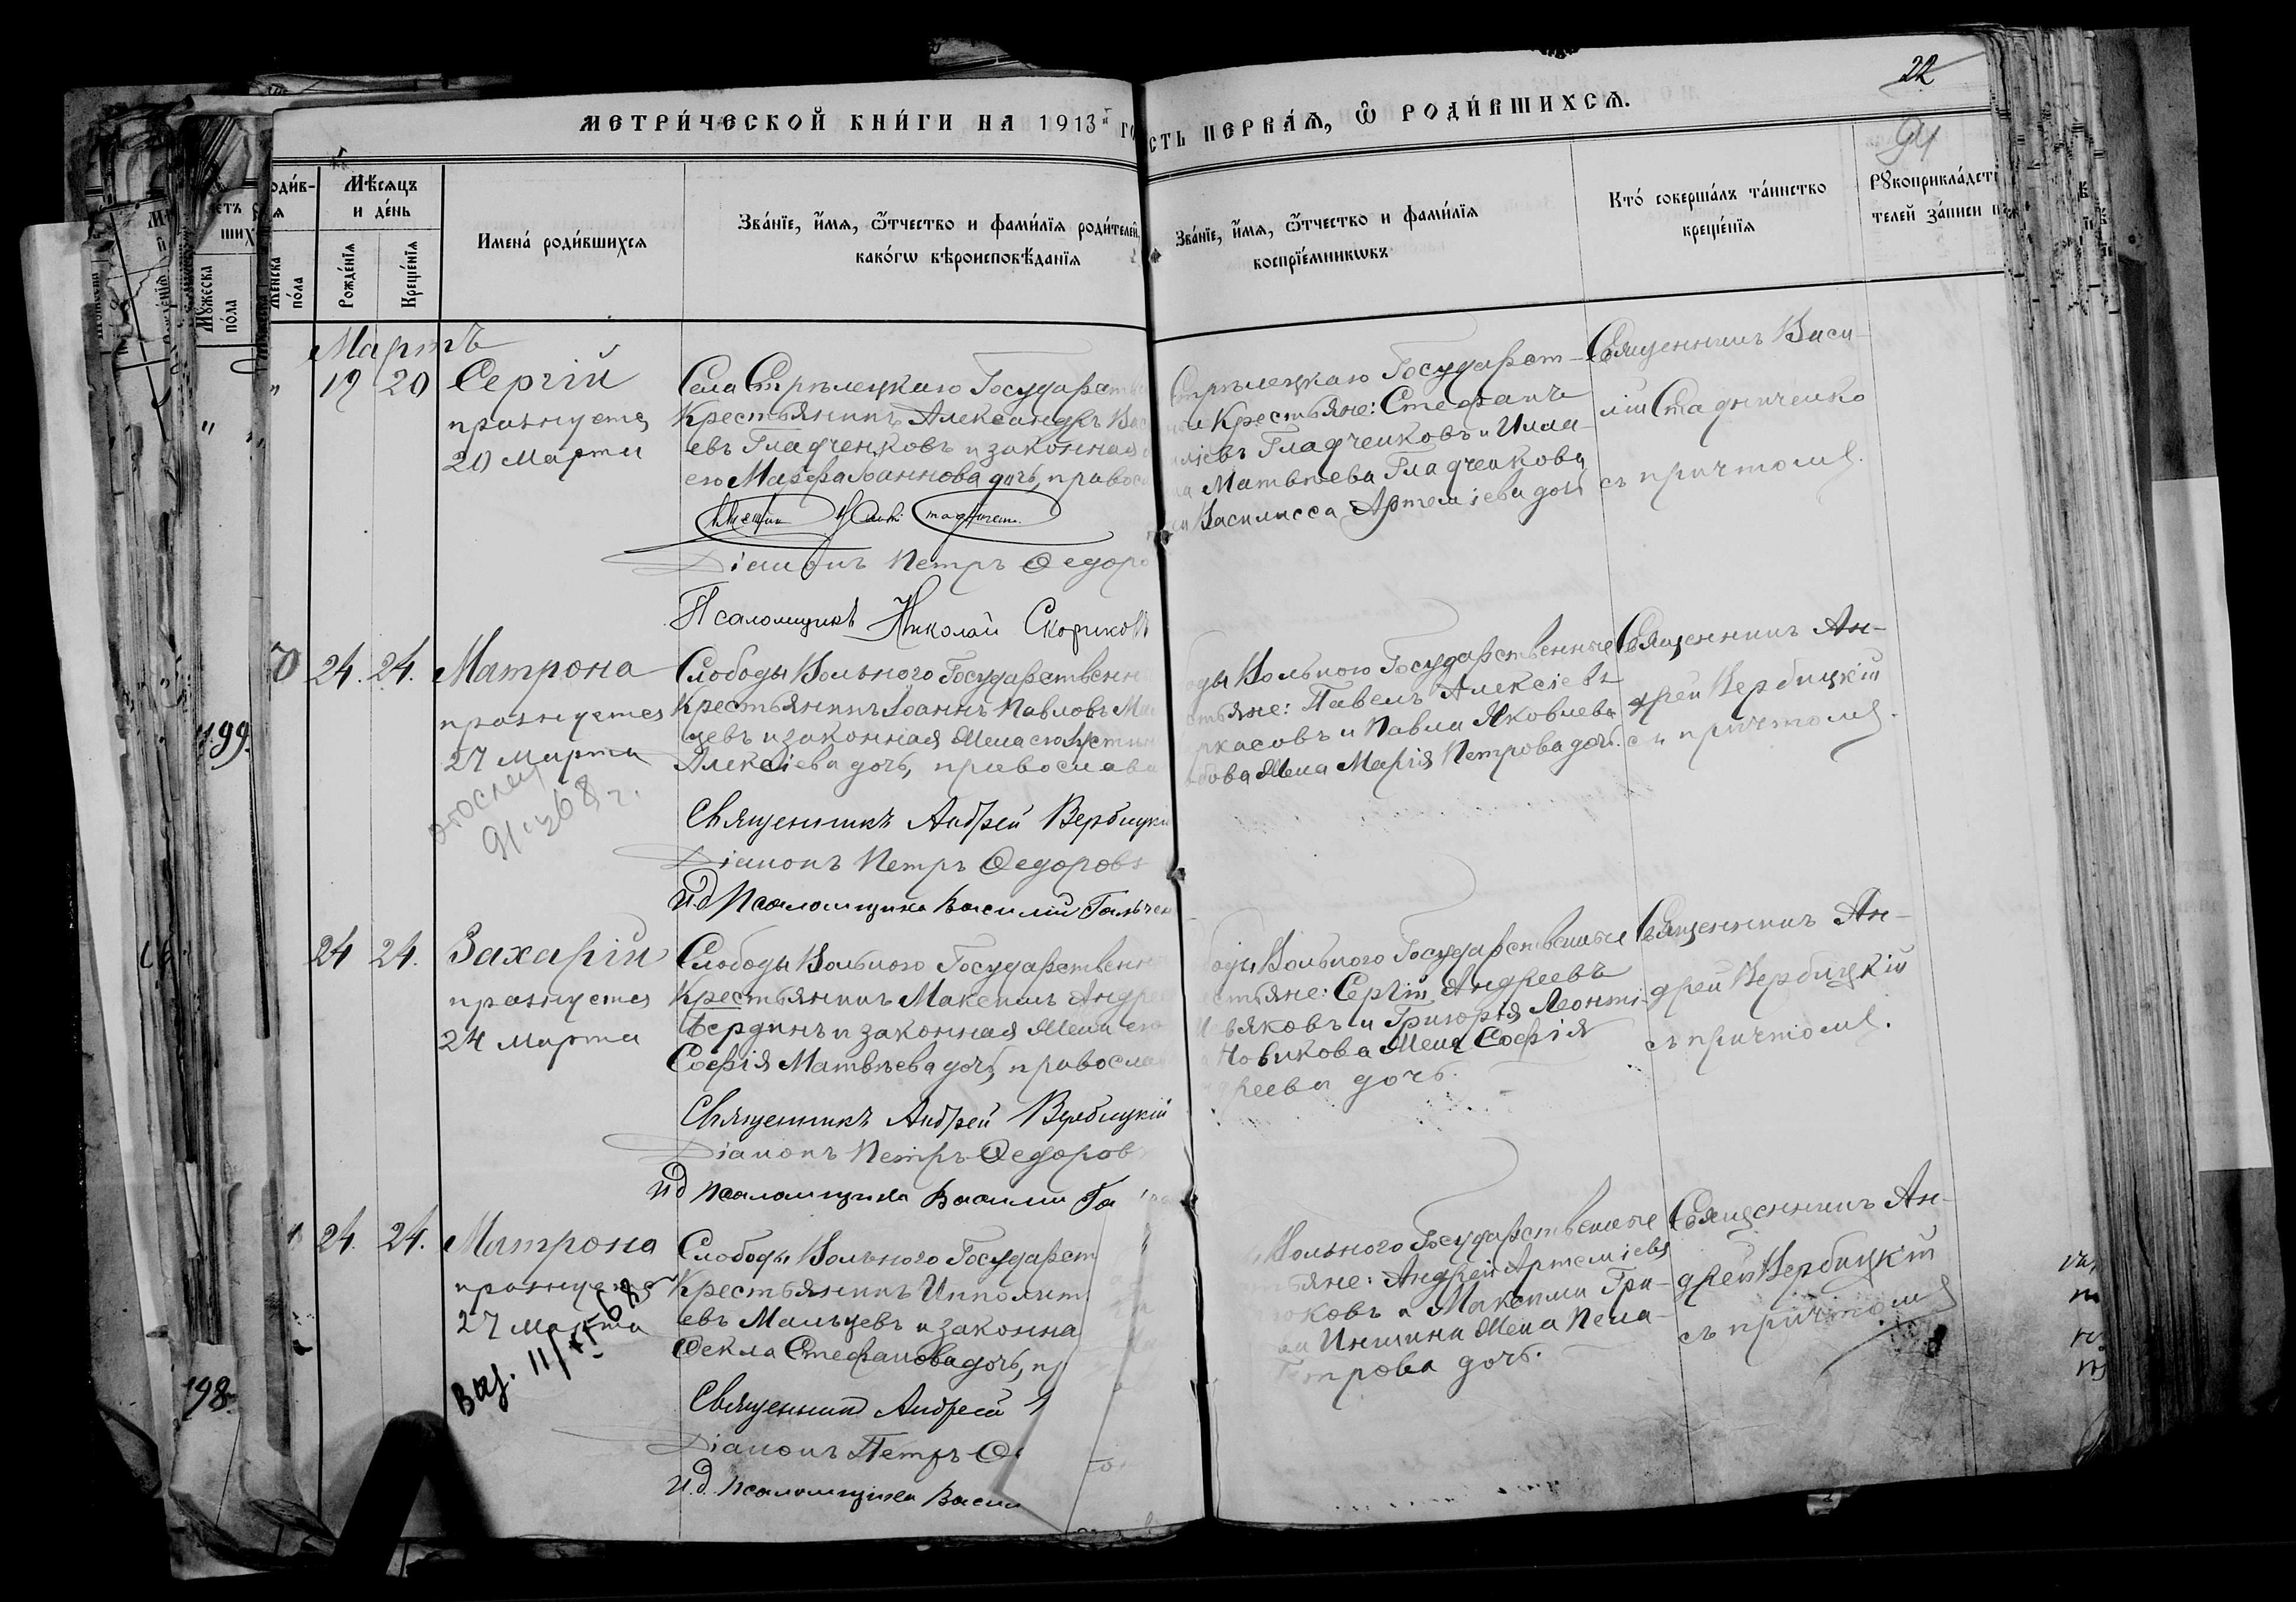 22
94
МЕТРИ́ЧЕСКОЙ КНИ́ГИ НА 1913й ГО
СТЬ ПЕРВАѦ, Ѿ РОДИ́ВШИХСѦ.
Мѣ́сяцъ
и де́нь
Рожде́нїя
Креще́нїя
Имена́ роди́вшихся
Зва́нїе, и҆́мя, ѻ҆́тчество и фами́лїя роди́телей,
како́гѡ вѣроисповѣ́данїя
Зва́нїе, и҆́мя, ѻ҆́тчество и фами́лїя
воспрїе́мникѡвъ
Кто́ соверша́лъ та́инство
креще́нїя
Рꙋкоприкла́дст
телей за́писи
Мартъ
19 20 Сергій
празнуется
20 Марта
Села Стрѣлецкаго Государств
Крестьянинъ Александръ Вас
евъ Гладченковъ и законная
его Марѳа Іоаннова дочь, правос
Діаконъ Петръ Ѳедоро
Псаломщикъ Николай Скориков
Стрѣлецкаго Государст-
Крестьяне: Стефанъ
Гладченковъ и
Матвѣева Гладченкова
Василисса Артеміева дочь
Священникъ Васи-
лій Стадниченко
съ причтомъ.
24. 24. Матрона
празнуется
27 Марта
Слободы Вольного Государственн
Крестьянинъ Іоаннъ Павловъ
цевъ и законная Жена его
Алексіева дочь, православ
Священникъ Андрей Вербицкі
Діаконъ Петръ Ѳедоровъ
И.д. Псаломщика Василій Гальчен
оды Вольного Государственные
стьяне: Павелъ Алексіевъ
ркасовъ и Павла Яковлева
Жена Марія Петрова дочь.
Священникъ Ан-
дрей Вербицкій
съ причтомъ.
24 24. Захарій
празнуется
24 Марта
Слободы Вольного Государственн
Крестьянинъ Максимъ Андре
Бердинъ и законная Жена его
Софія Матвѣева дочь, православ
Священникъ Андрей Вербицкій
Діаконъ Петръ Ѳедоров
И.д. Псаломщика Василій Га
оды Вольного Государственные
стьяне: Сергій Андреевъ
вяковъ и Григорія Леонті-
Новикова Жена Софія
дреева дочь.
Священникъ Ан-
дрей Вербицкій
съ причтомъ.
24. 24. Матрона
празнуется
27 Марта
Слободы Вольного Государст
Крестьянинъ Ипполит
евъ Мальцевъ и законна
Ѳекла Стефанова дочь, пр
Священникъ Андрей
Діаконъ Петръ Ѳ
И.д. Псаломщика Васи
Вольного Государственные
стьяне: Андрей Артеміевъ
оковъ и Максима Гри-
Иншина Жена Пела-
Петрова дочь.
Священникъ Ан-
дрей Вербицкій
съ причтомъ
199.
198.